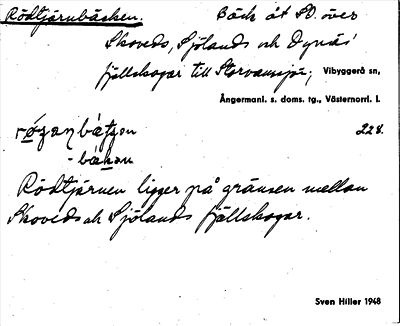 Rödtjärnbäcken. Bäck åt SO. över
Skoveds, Sjölands och Dynäs'
fjällskogar till Storvamsjön, Vibyggerå sn,
Ångermanl. s. doms. tg., Västernorrl. l.
228.
- bäkən
Rödtjärnen ligger på gränsen mellan
Skoveds och Sjölands fjällskogar.
Sven Hiller 1948